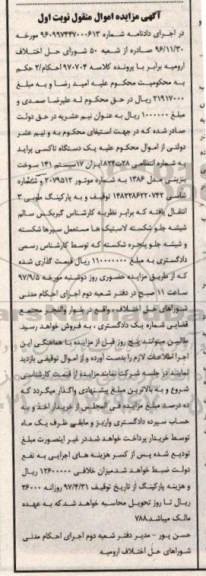 آگهی مزایده اموال منقول نوبت اول
در اجرای دادنامه شماره ۹۶۰۹۹۷۴۴۷۰۰۰۶۱۳ مورخه
۹۶/۱۱/۳۰ صادره از شعبه ۵۰ شورای حل اختلاف
ارومیه برابر با پرونده کلاسه ۹۷۰۷۰۴ احکام/۲ حکم
به محکومیت محکوم علیه امید رضا و به مبلغ
۲۱۹۱۷۰۰۰ ریال در حق محکوم له علیرضا صمدی و
مبلغ ۱۰۰۰۰۰۰ ریال به عنوان نیم عشریه در حق دولت
صادر شده که در جهت استیفای محکوم به و نیم عشر
دولتی از اموال محکوم علیه یک دستگاه تاکسی پراید
به شماره انتظامی ایران ۱۷ سیستم ۱۴۱ سوخت
بنزینی مدل ۱۳۸۶ به شماره موتور ۲۰۷۹۵۱۲ و شماره
شاسی توقیف و به پارکینگ طوبی ۳
انتقال یافته که برابر نظریه کارشناس گیربکس سالم
شیشه جلو شکسته لاستیک ها مستعمل سپرها شکسته
و شیشه جلو پنجره شکسته که توسط کارشناس رسمی
دادگستری به مبلغ ۱۱۰۰۰۰۰۰۰ ریال قیمت گذاری شده
که از طریق مزایده حضوری روز دوشنبه مورخه ۹۷/۹/۵
ساعت ۱۱ صبح در دفتر شعبه دوم اجرای احکام مدنی
شوراهای حل اختلاف واقع در مجتمع
قضایی شماره یک دادگستری ، به فروش خواهد رسید.
طالبین میتوانند پنج روز قبل از مزایده با هماهنگی این
اجرا اطلاعات لازم را بدست آورده و از اموال توقیفی بازدید
نمایند در جلسه شرکت نمایند مزایده از قیمت کارشناسی
شروع و به بالاترین مبلغ پیشنهادی واگذار میگردد که
ده درصد مبلغ مزایده فی المجلس از خریدار اخذ و به
حساب سپرده دادگستری واریز و مابقی ظرف یک ماه
توسط خریدار پرداخت خواهد شد در غیر اینصورت مبلغ
تودیع شده پس از کسر هزینه های اجرایی به نفع
دولت ضبط خواهد شد میزان خلافی ۱۲۶۰۰۰۰۰ ریال
و هزینه پارکینگ از تاریخ توقیف ۹۷/۴/۳۱ روزانه ۳۶۰۰۰
ریال تا روز تحویل محاسبه خواهد شد که به عهده
مالک میباشد ۷۸۸
حسن پور - مدیر دفتر شعبه دوم اجرای احکام مدنی
شوراهای حل اختلاف ارومیه